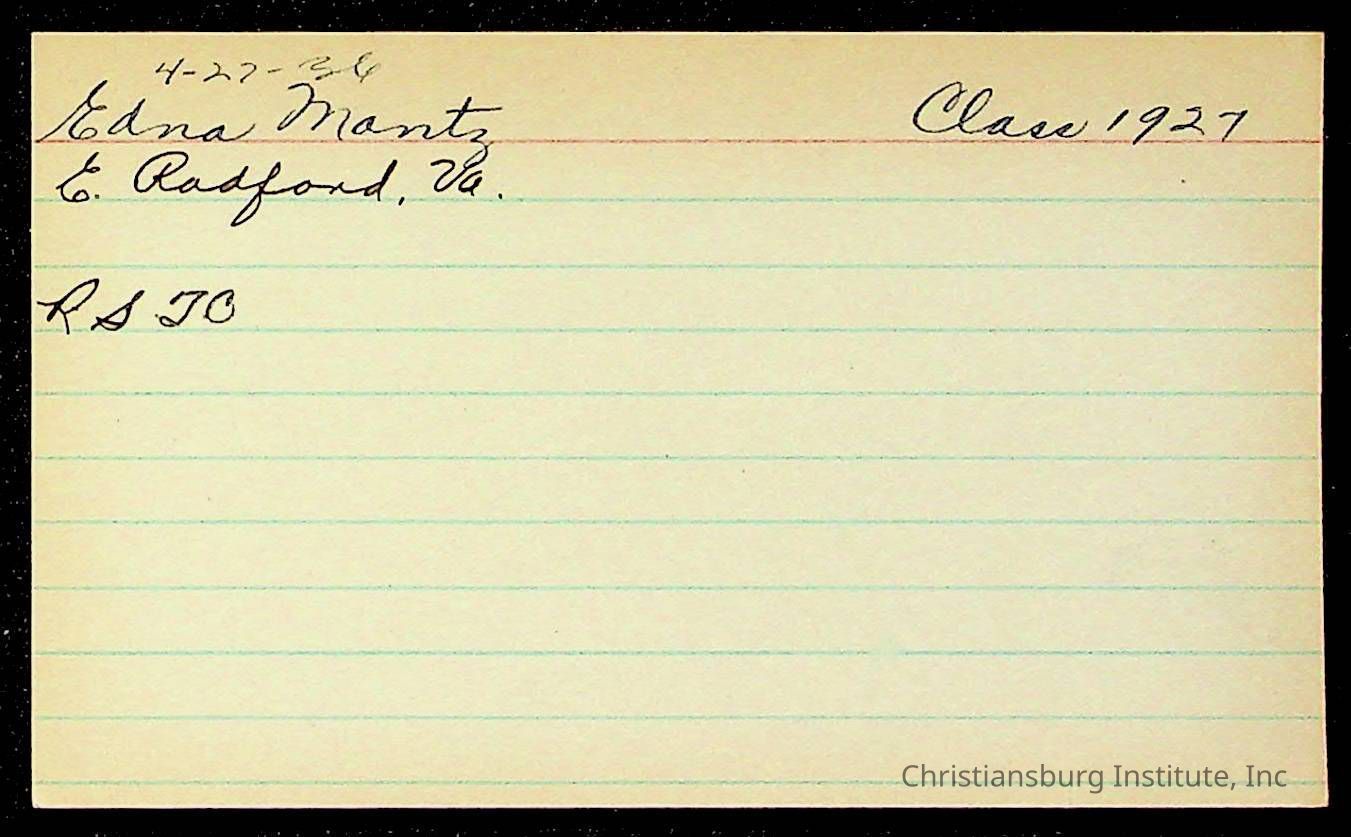 4-27-36
Edna Mantz Class 1927
E. Radford, Va.
R S TC
Christiansburg Institute, Inc